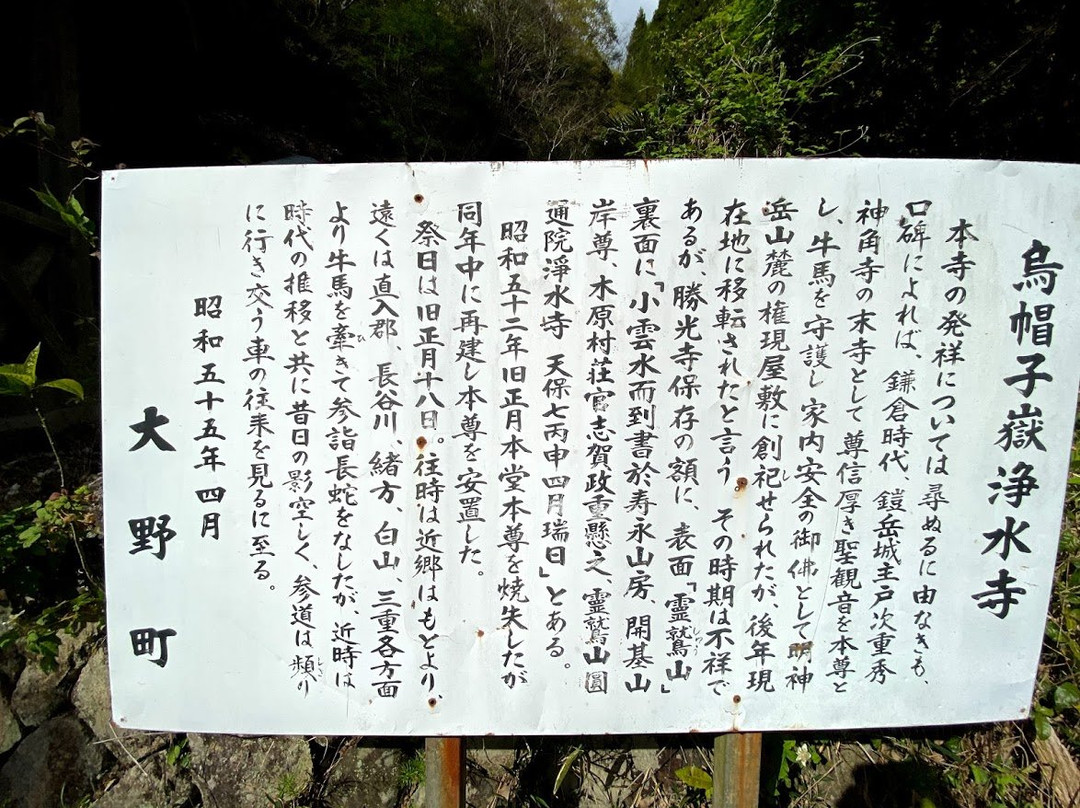 烏帽子嶽浄水寺
本寺の発祥については尋ぬるに由なきも、
口碑によれば、鎌倉時代、鎧岳城主戸次重秀
神角寺の末寺として尊信厚き聖観音を本尊と
し、牛馬を守護し家内安全の御佛として明神
岳山麓の権現屋敷に創祀せられたが、後年現
在地に移転されたと言う。その時期は不祥で
あるが、勝光寺保存の額に、表面「靈鷲山」
裏面に「小雲水而到書於寿永山房、開基山
岸尊、木原村荘官志賀政重懸之、靈鷲山圓
通院淨水寺 天保七丙申四月瑞日」とある。
昭和五十二年旧正月本堂本尊を焼失したが
同年中に再建し本尊を安置した。
祭日は旧正月十八日。往時は近郷はもとより、
遠くは直入郡、長谷川、緒方、白山、三重各方面
より牛馬を牽きて参詣長蛇をなしたが、近時は
時代の推移と共に昔日の影空しく、参道は頻り
に行き交う車の往来を見るに至る。
昭和五十五年四月
大野町